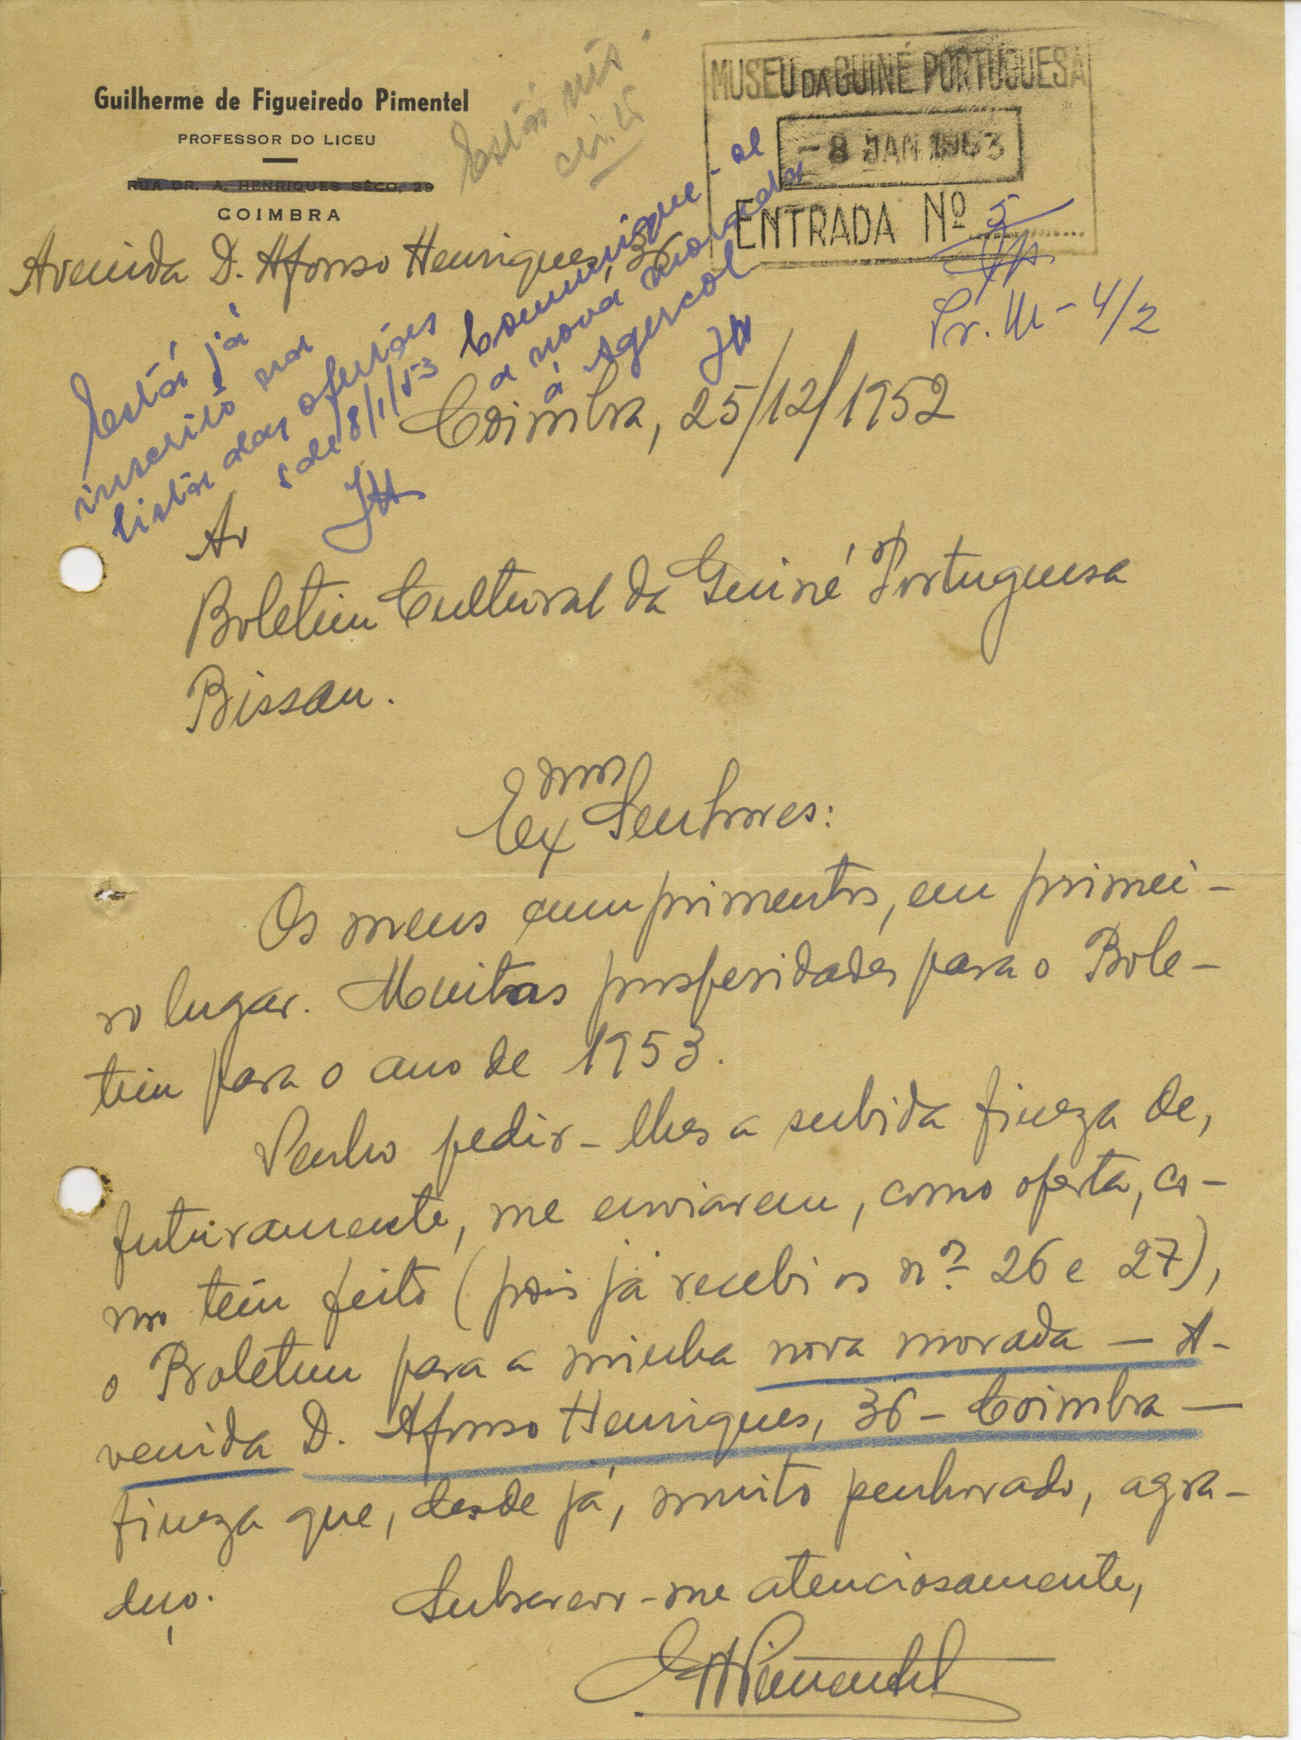 Guilherme de Figueiredo Pimentel
PROFESSOR DO LICEU
RUA DR. A. HENRIQUES SÊCO, 29
COIMBRA
Avenida D. Afonso Henriques, 36
MUSEU DA GUINÉ PORTUGUESA
- 8 JAN 1953
ENTRADA Nº 5
Pr. M - 4/2
Está já
inscrito na
lista das ofertas
8/1/53
Comunique-se
a nova morada
à Agercol
Coimbra, 25/12/1952
Ao
Boletim Cultural da Guiné Portuguesa
Bissau.
Exmos Senhores:
Os meus cumprimentos, em primei-
ro lugar. Muitas prosperidades para o Bole-
tim para o ano de 1953.
Venho pedir-lhes a subida fineza de,
futuramente, me enviarem, como oferta, co-
mo têm feito (pois já recebi os nos 26 e 27),
o Boletim para a minha nova morada — A-
venida D. Afonso Henriques, 36 - Coimbra —
fineza que, desde já, muito penhorado, agra-
deço.
Subscrevo-me atenciosamente,
Pimentel